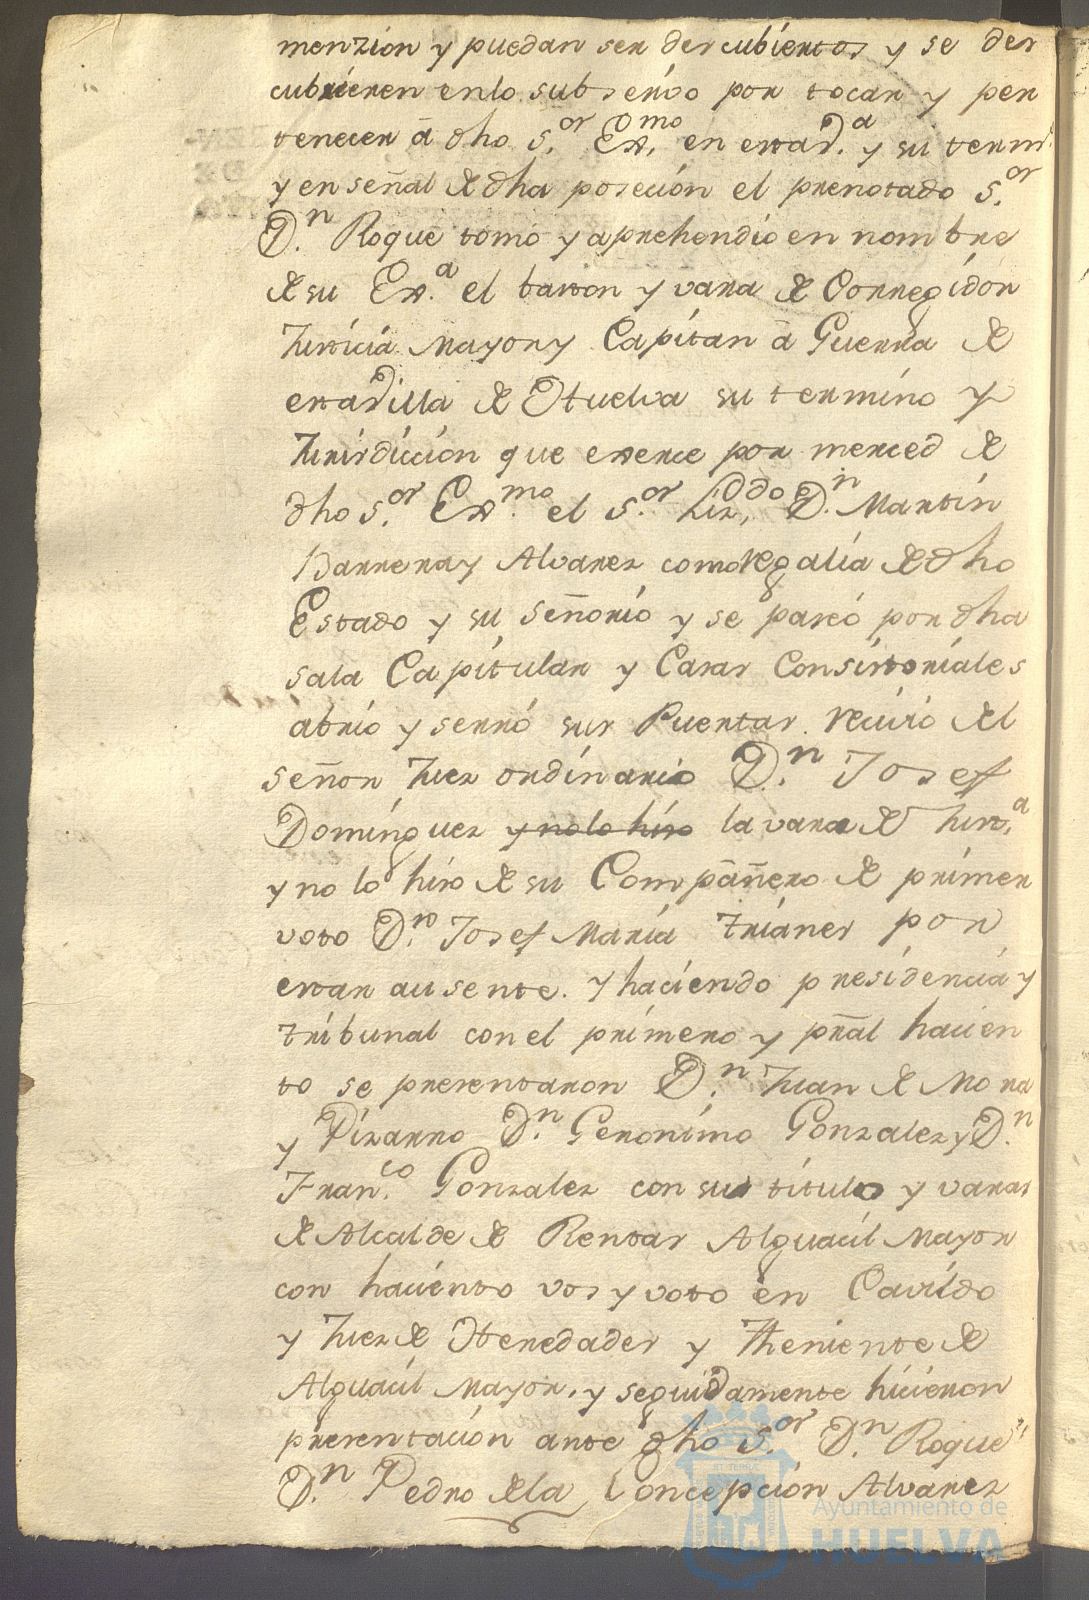 menzion y puedan ser descubiertos y se des
cubrieren enlo subsesivo por tocar y per
tenecer ā dho S.or Ex.mo en esta v.a y su termi.
y en señal de dha posecion el prenotado S.or
D.n Roque tomo y aprehendio en nombre
de su Ex.a el baston y vara de Corregidor
Justicia Mayor y Capitan ā Guerra de
esta Villa de Huelva su termino y
Jurisdiccion que exerce por merced de
dho S.or Ex.mo el S.or Liz.do D.n Martin
Barrera y Alvarez como regalia de dho
Estado y su señorio y se paseó por dha
sala Capitular y Casas Consistoriales
abrio y serró sus Puertas. recivio del
señor Juez ordinario D.n Josef
Dominguez y no lo hizo la vara de Just.a
y no lo hizo de su Compañero de primer
voto D.n Josef Maria Trianes por
estar ausente. y haciendo presidencia y
tribunal con el primero y prāl hacien
to se presentaron D.n Juan de Mora
y Pizarro D.n Geronimo Gonzalez y D.n
Fran.co Gonzalez con sus titulos y varas
de Alcalde de Rentas Alguacil Mayor
con haciento vos y voto en Cavildo
y Juez de Heredades y Theniente de
Alguacil Mayor. y seguidamente hicieron
presentacion ante dho S.or D.n Roque
D.n Pedro dela Concepcion Alvarez
Ayuntamiento de
HUELVA